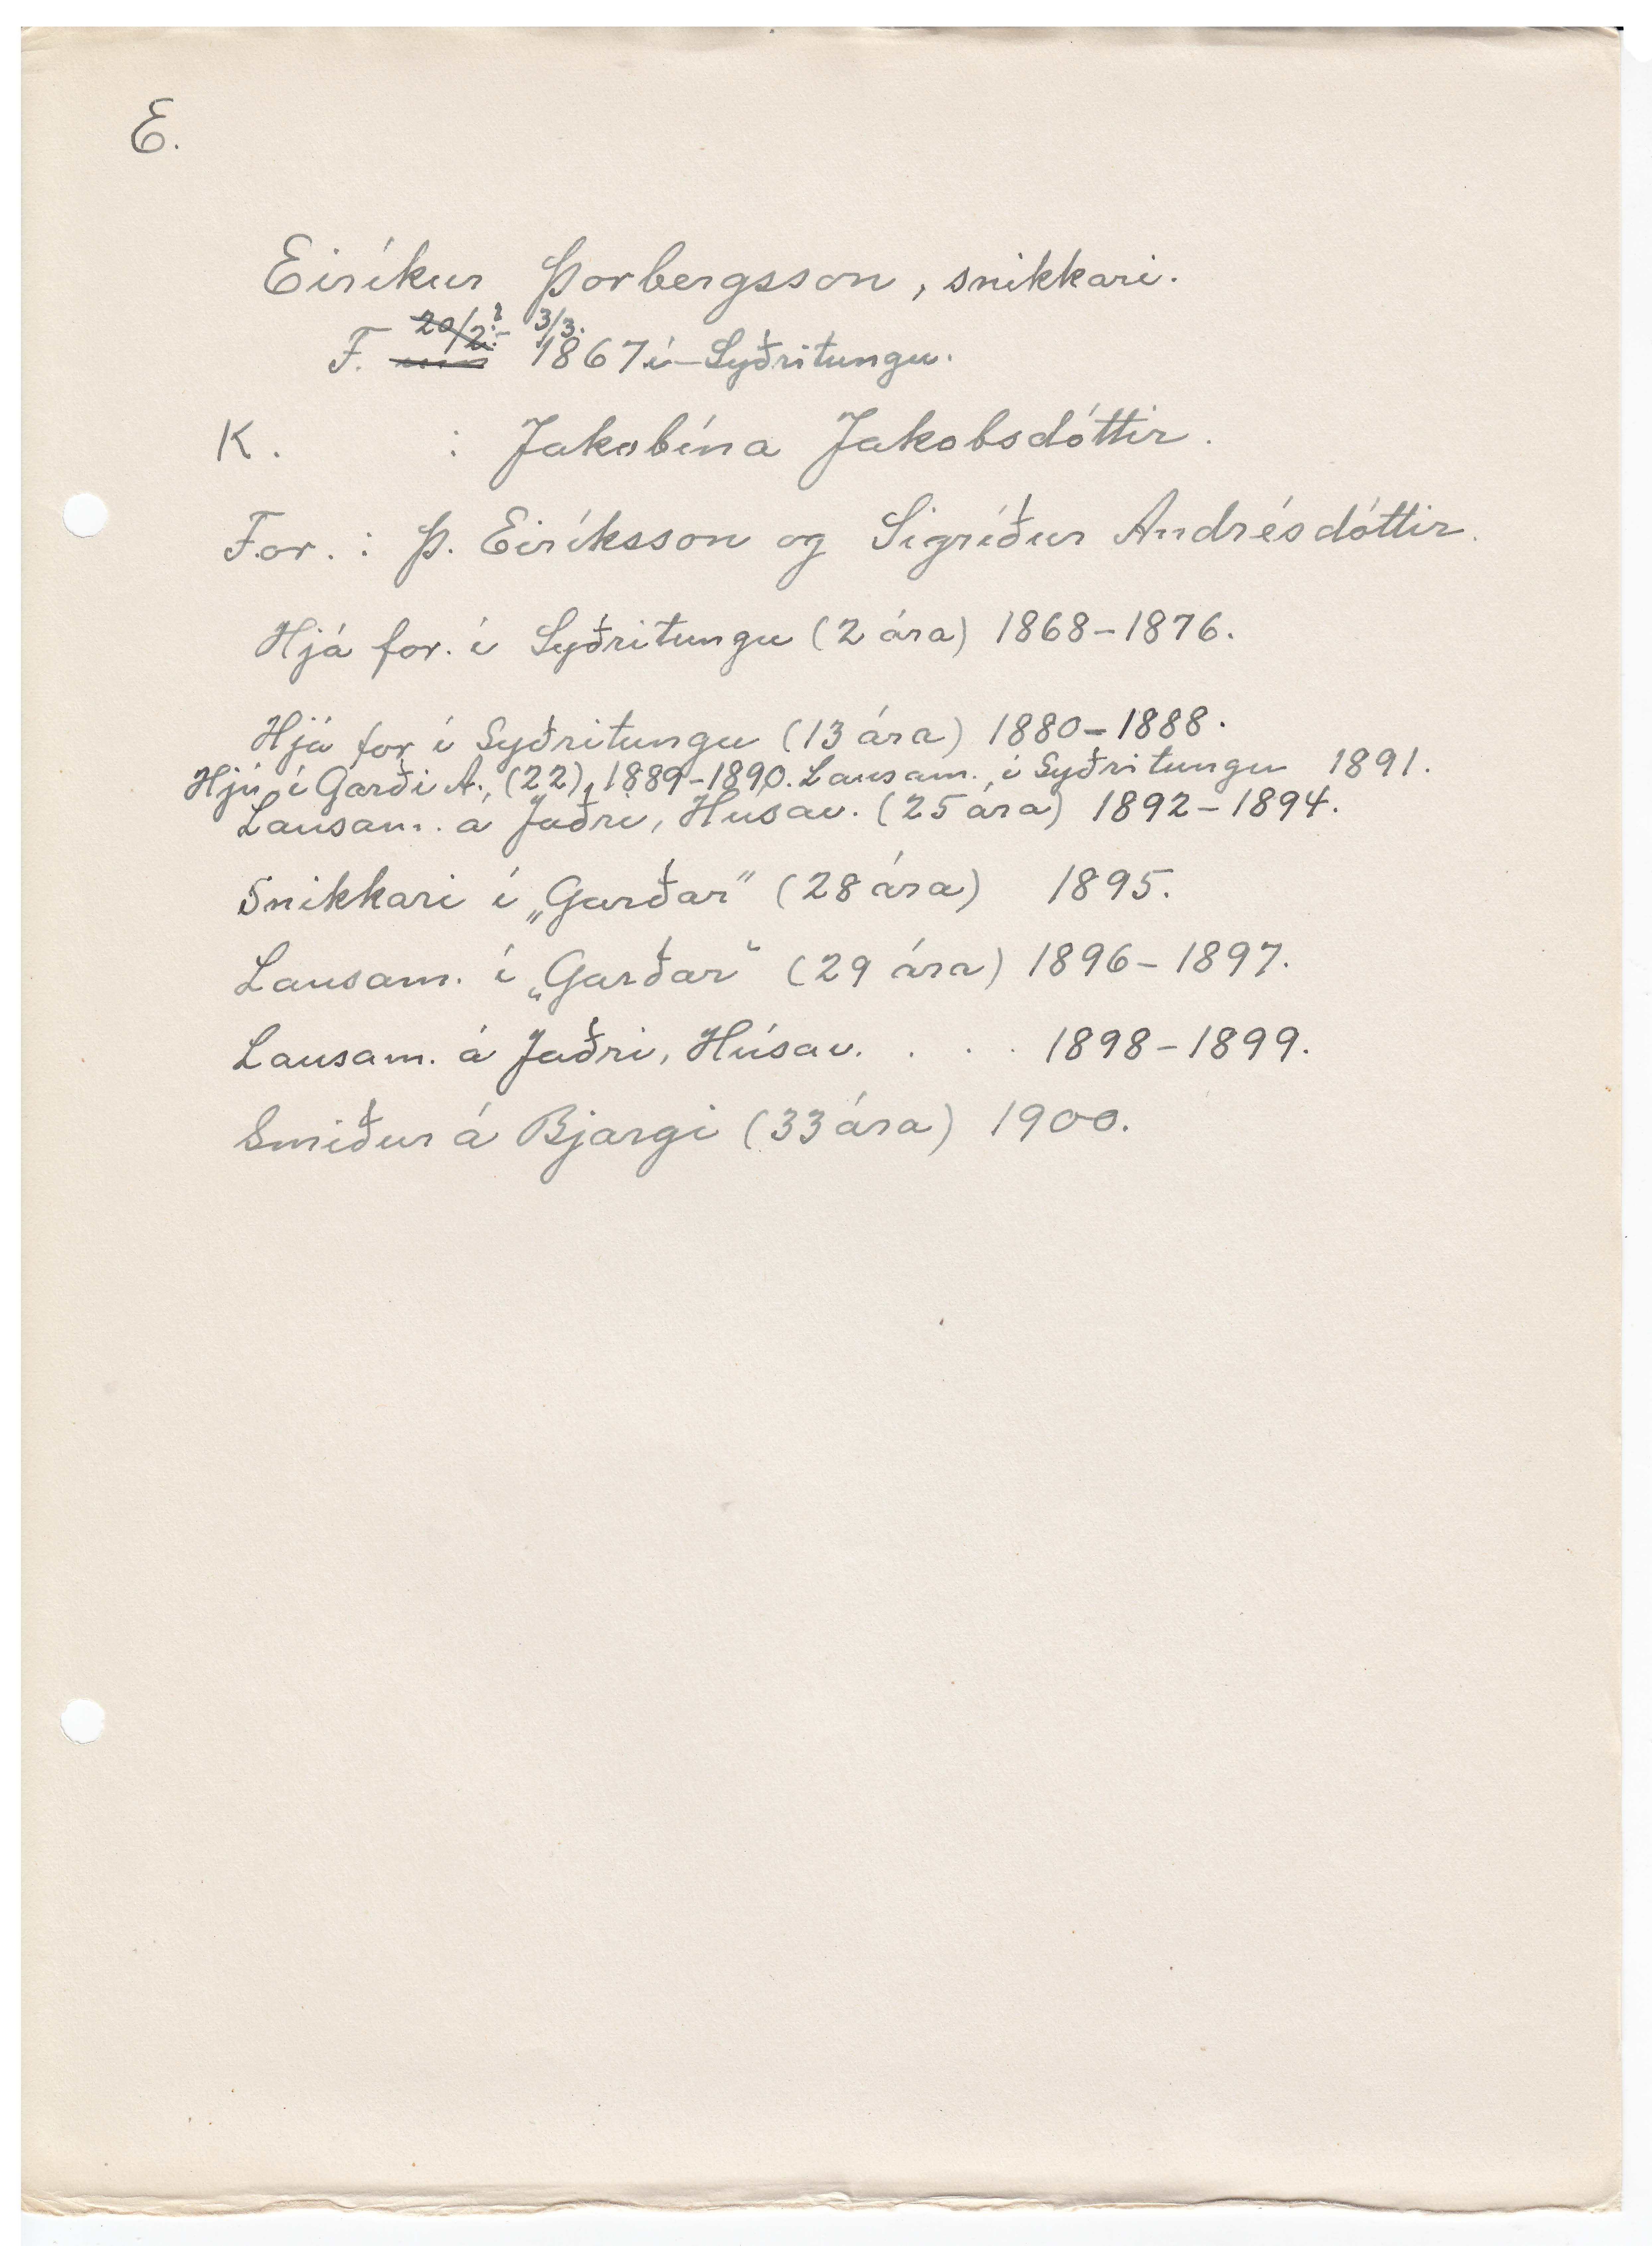 E.
Eiríkur Þorbergsson, snikkari.
20/2.? 3/3.
F. 1867 í Syðritungu.
K. : Jakobína Jakobsdóttir.
For. : Þ. Eiríksson og Sigríður Andrésdóttir.
Hjá for. í Syðritungu (2 ára) 1868-1876.
Hjá for í Syðritungu (13 ára) 1880-1888.
Hjú í Garði A., (22), 1889-1890. Lausam., í Syðritungu 1891.
Lausam. á Jaðri, Húsav. (25 ára) 1892-1894.
Snikkari í „Garðar" (28 ára) 1895.
Lausam. í „Garðar" (29 ára) 1896-1897.
Lausam. á Jaðri, Húsav. . . . 1898-1899.
Smiður á Bjargi (33 ára) 1900.